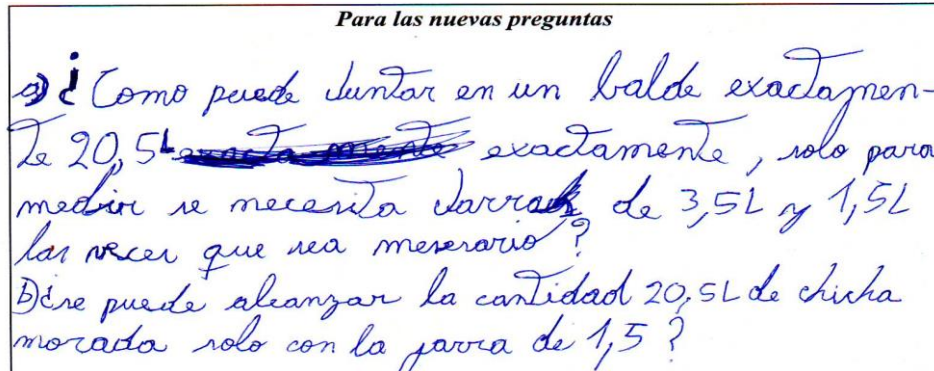 Para las nuevas preguntas
a) ¿Como puede Juntar en un balde exactamen-
te 20,5L exactamente, solo para
medir se necesita Jarra de 3,5L y 1,5L
las veces que sea meserario?
b) ¿se puede alcanzar la cantidad 20,5L de chicha
morada solo con la jarra de 1,5?